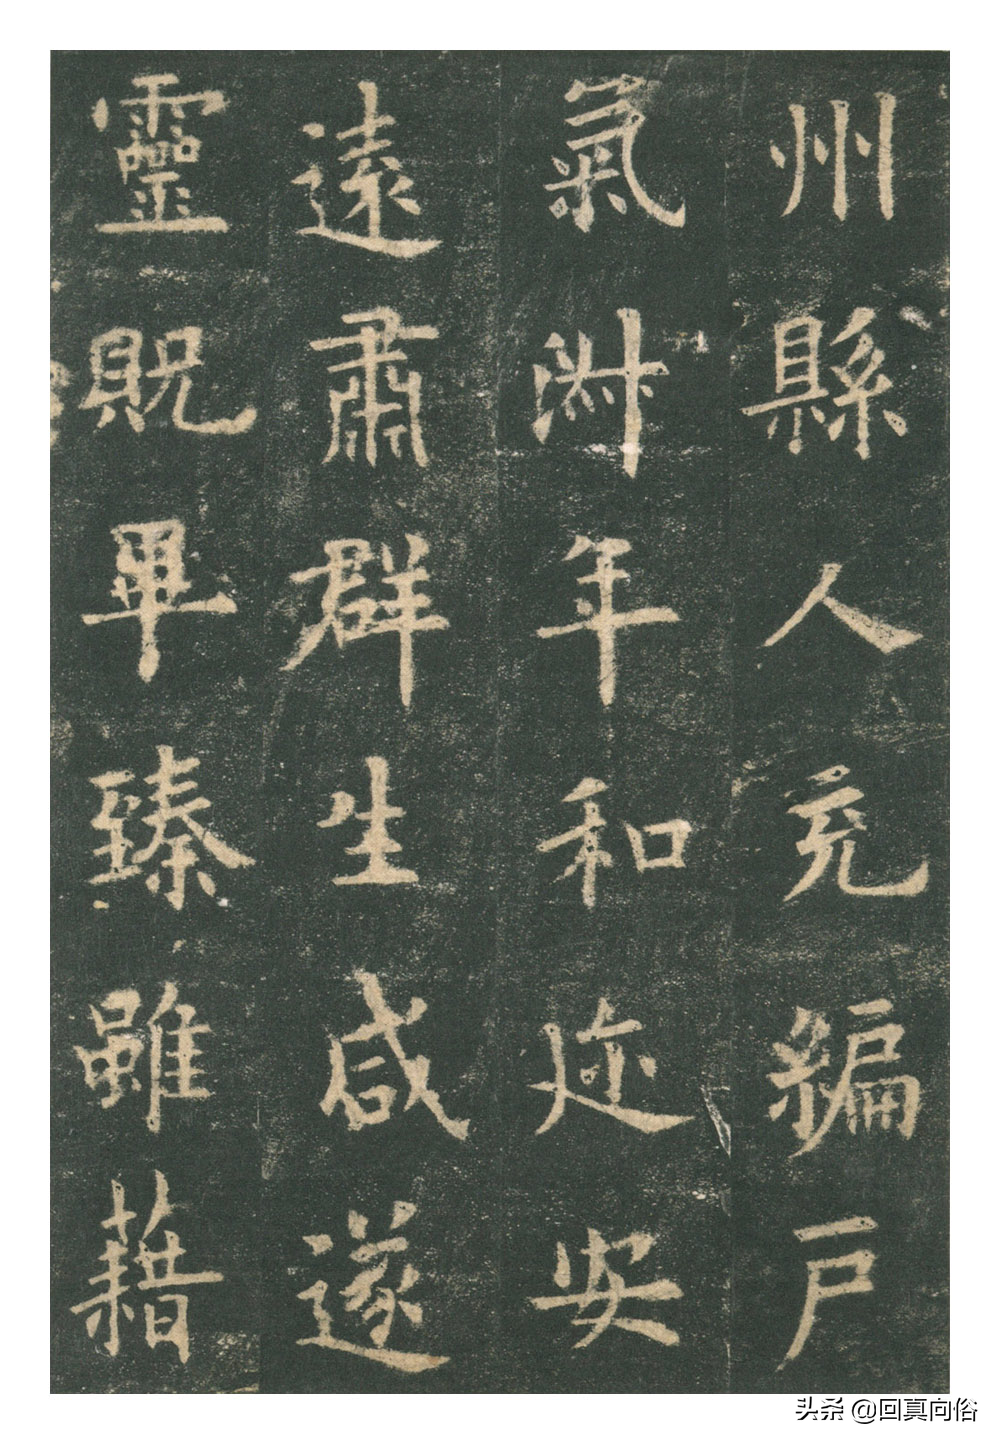 州縣人充編戶
氣淋年和迩安
遠肅群生咸遂
靈貺畢臻雖藉
头条 @回真向俗